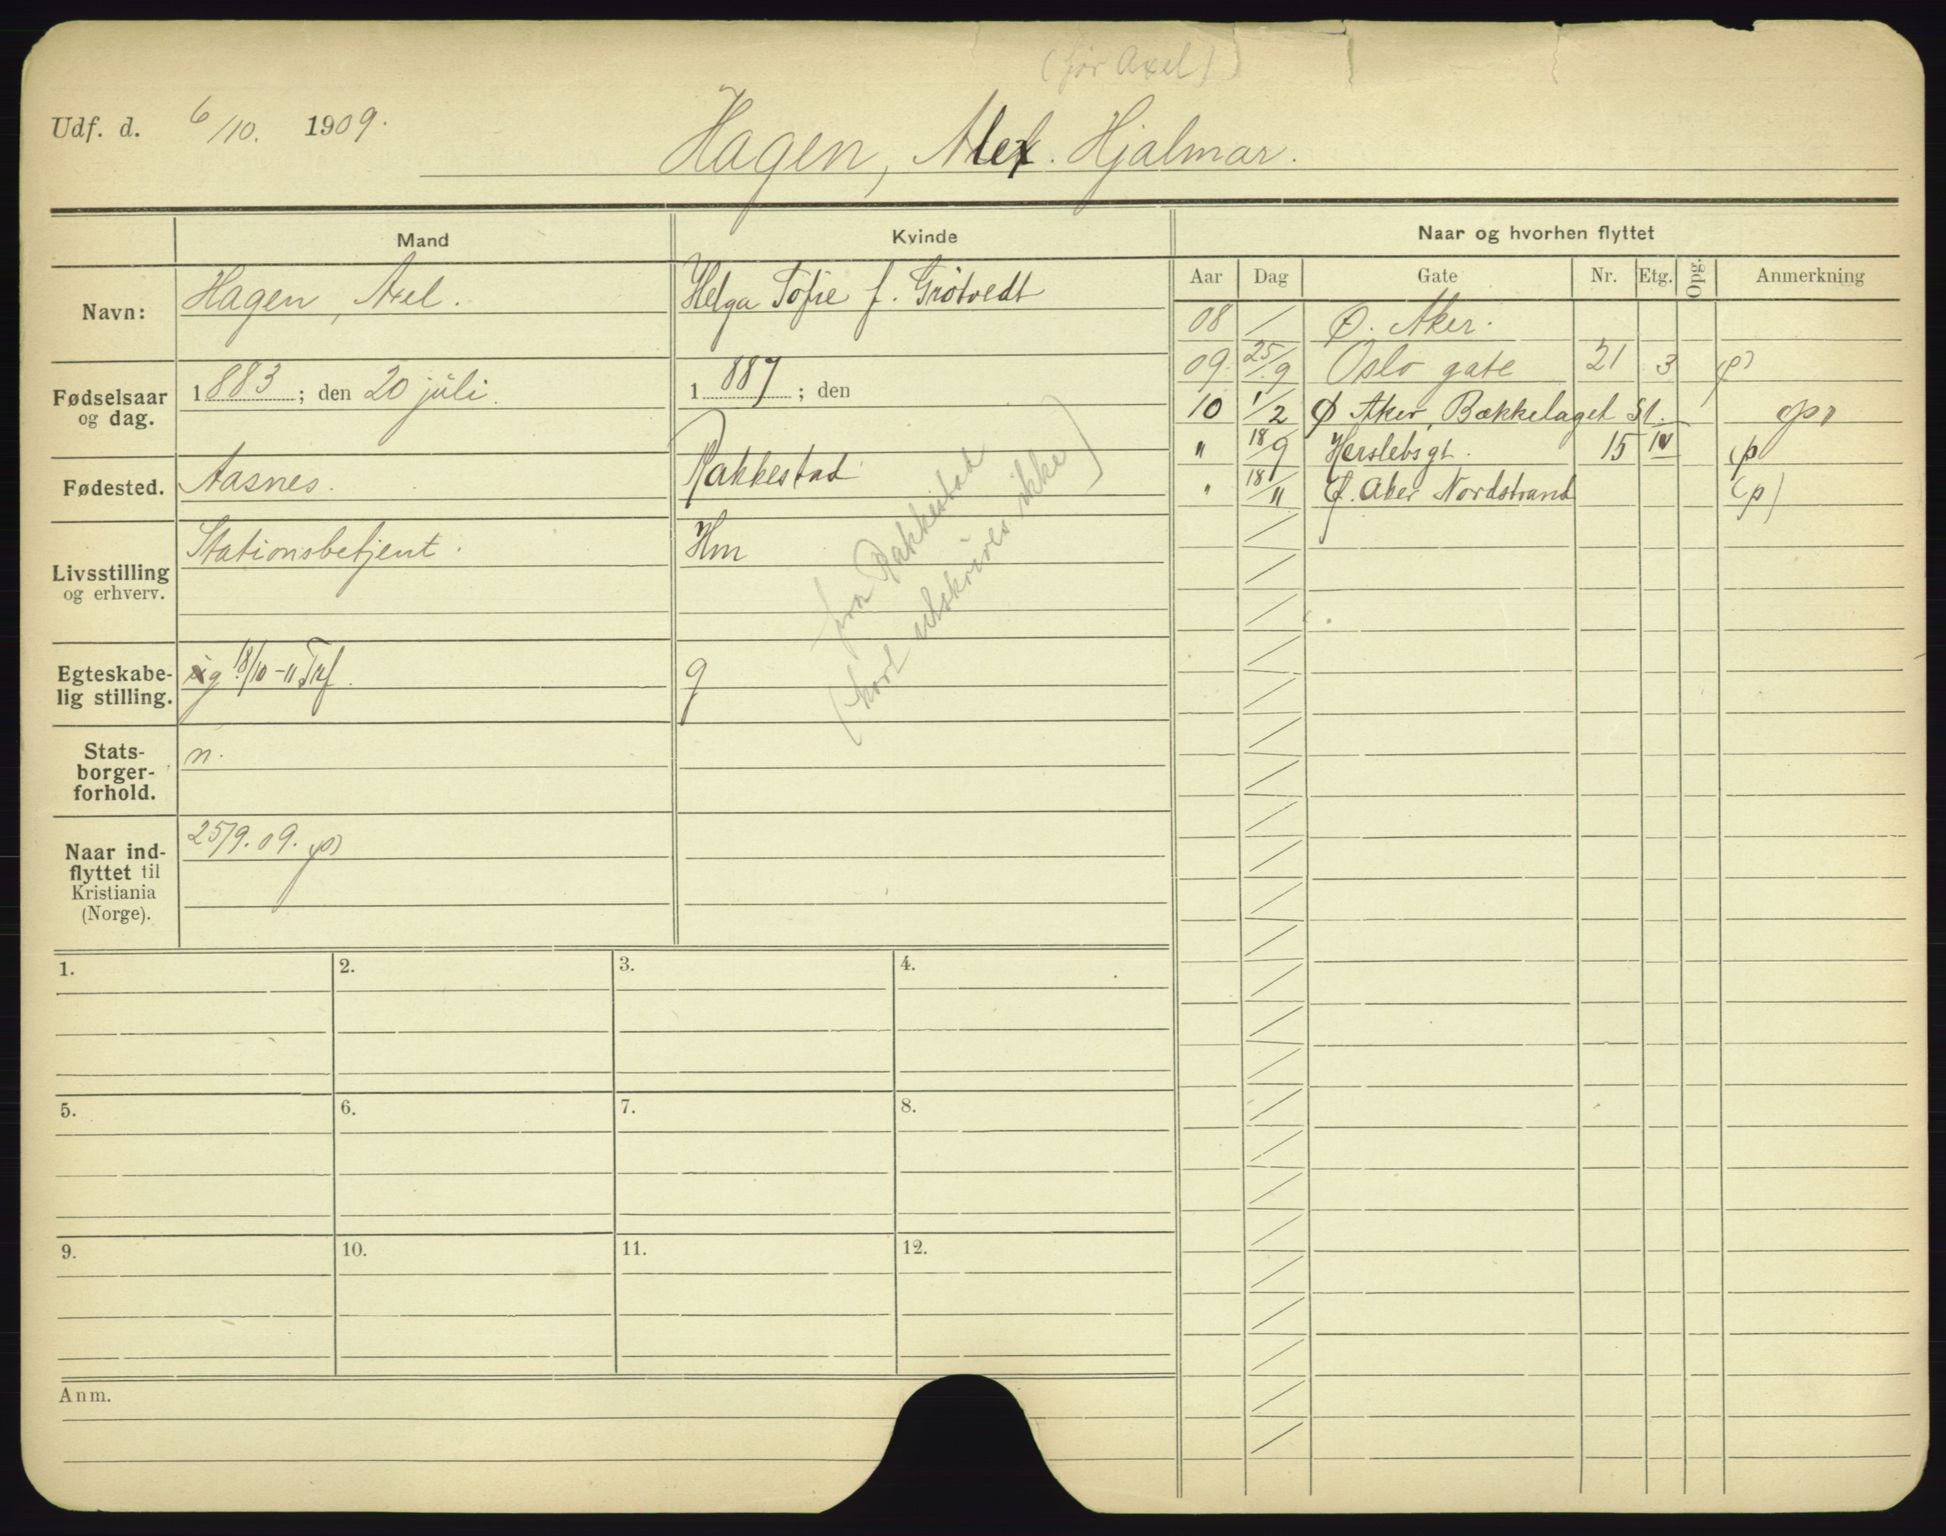 (før Axel)
Udf. d. 6/10. 1909.
Hagen, Alex. Hjalmar.
Mand
Kvinde
Naar og hvorhen flyttet
Aar Dag Gate Nr. Etg. Opg. Anmerkning
Navn: Hagen, Axel. Helga Sofie f. Grötvedt
Fødselsaar og dag. 1883; den 20 juli. 1887; den
Fødested. Aasnes. Rakkestad
Livsstilling og erhverv. Stationsbetjent. Hm
fra Rakkestad
(kort utskrives ikke)
Egteskabelig stilling. g 18/10-11 Trf. g
Statsborgerforhold. n.
Naar indflyttet til Kristiania (Norge). 25/9. 09. p)
08 / Ø. Aker.
09 25/9 Oslo gate 21 3 (p)
10 1/2 Ø Aker, Bækkelaget St.
" 18/9 Herslebsgt. 15 IV (p
" 18/11 Ø. Aker Nordstrand (p)
1. 2. 3. 4.
5. 6. 7. 8.
9. 10. 11. 12.
Anm.